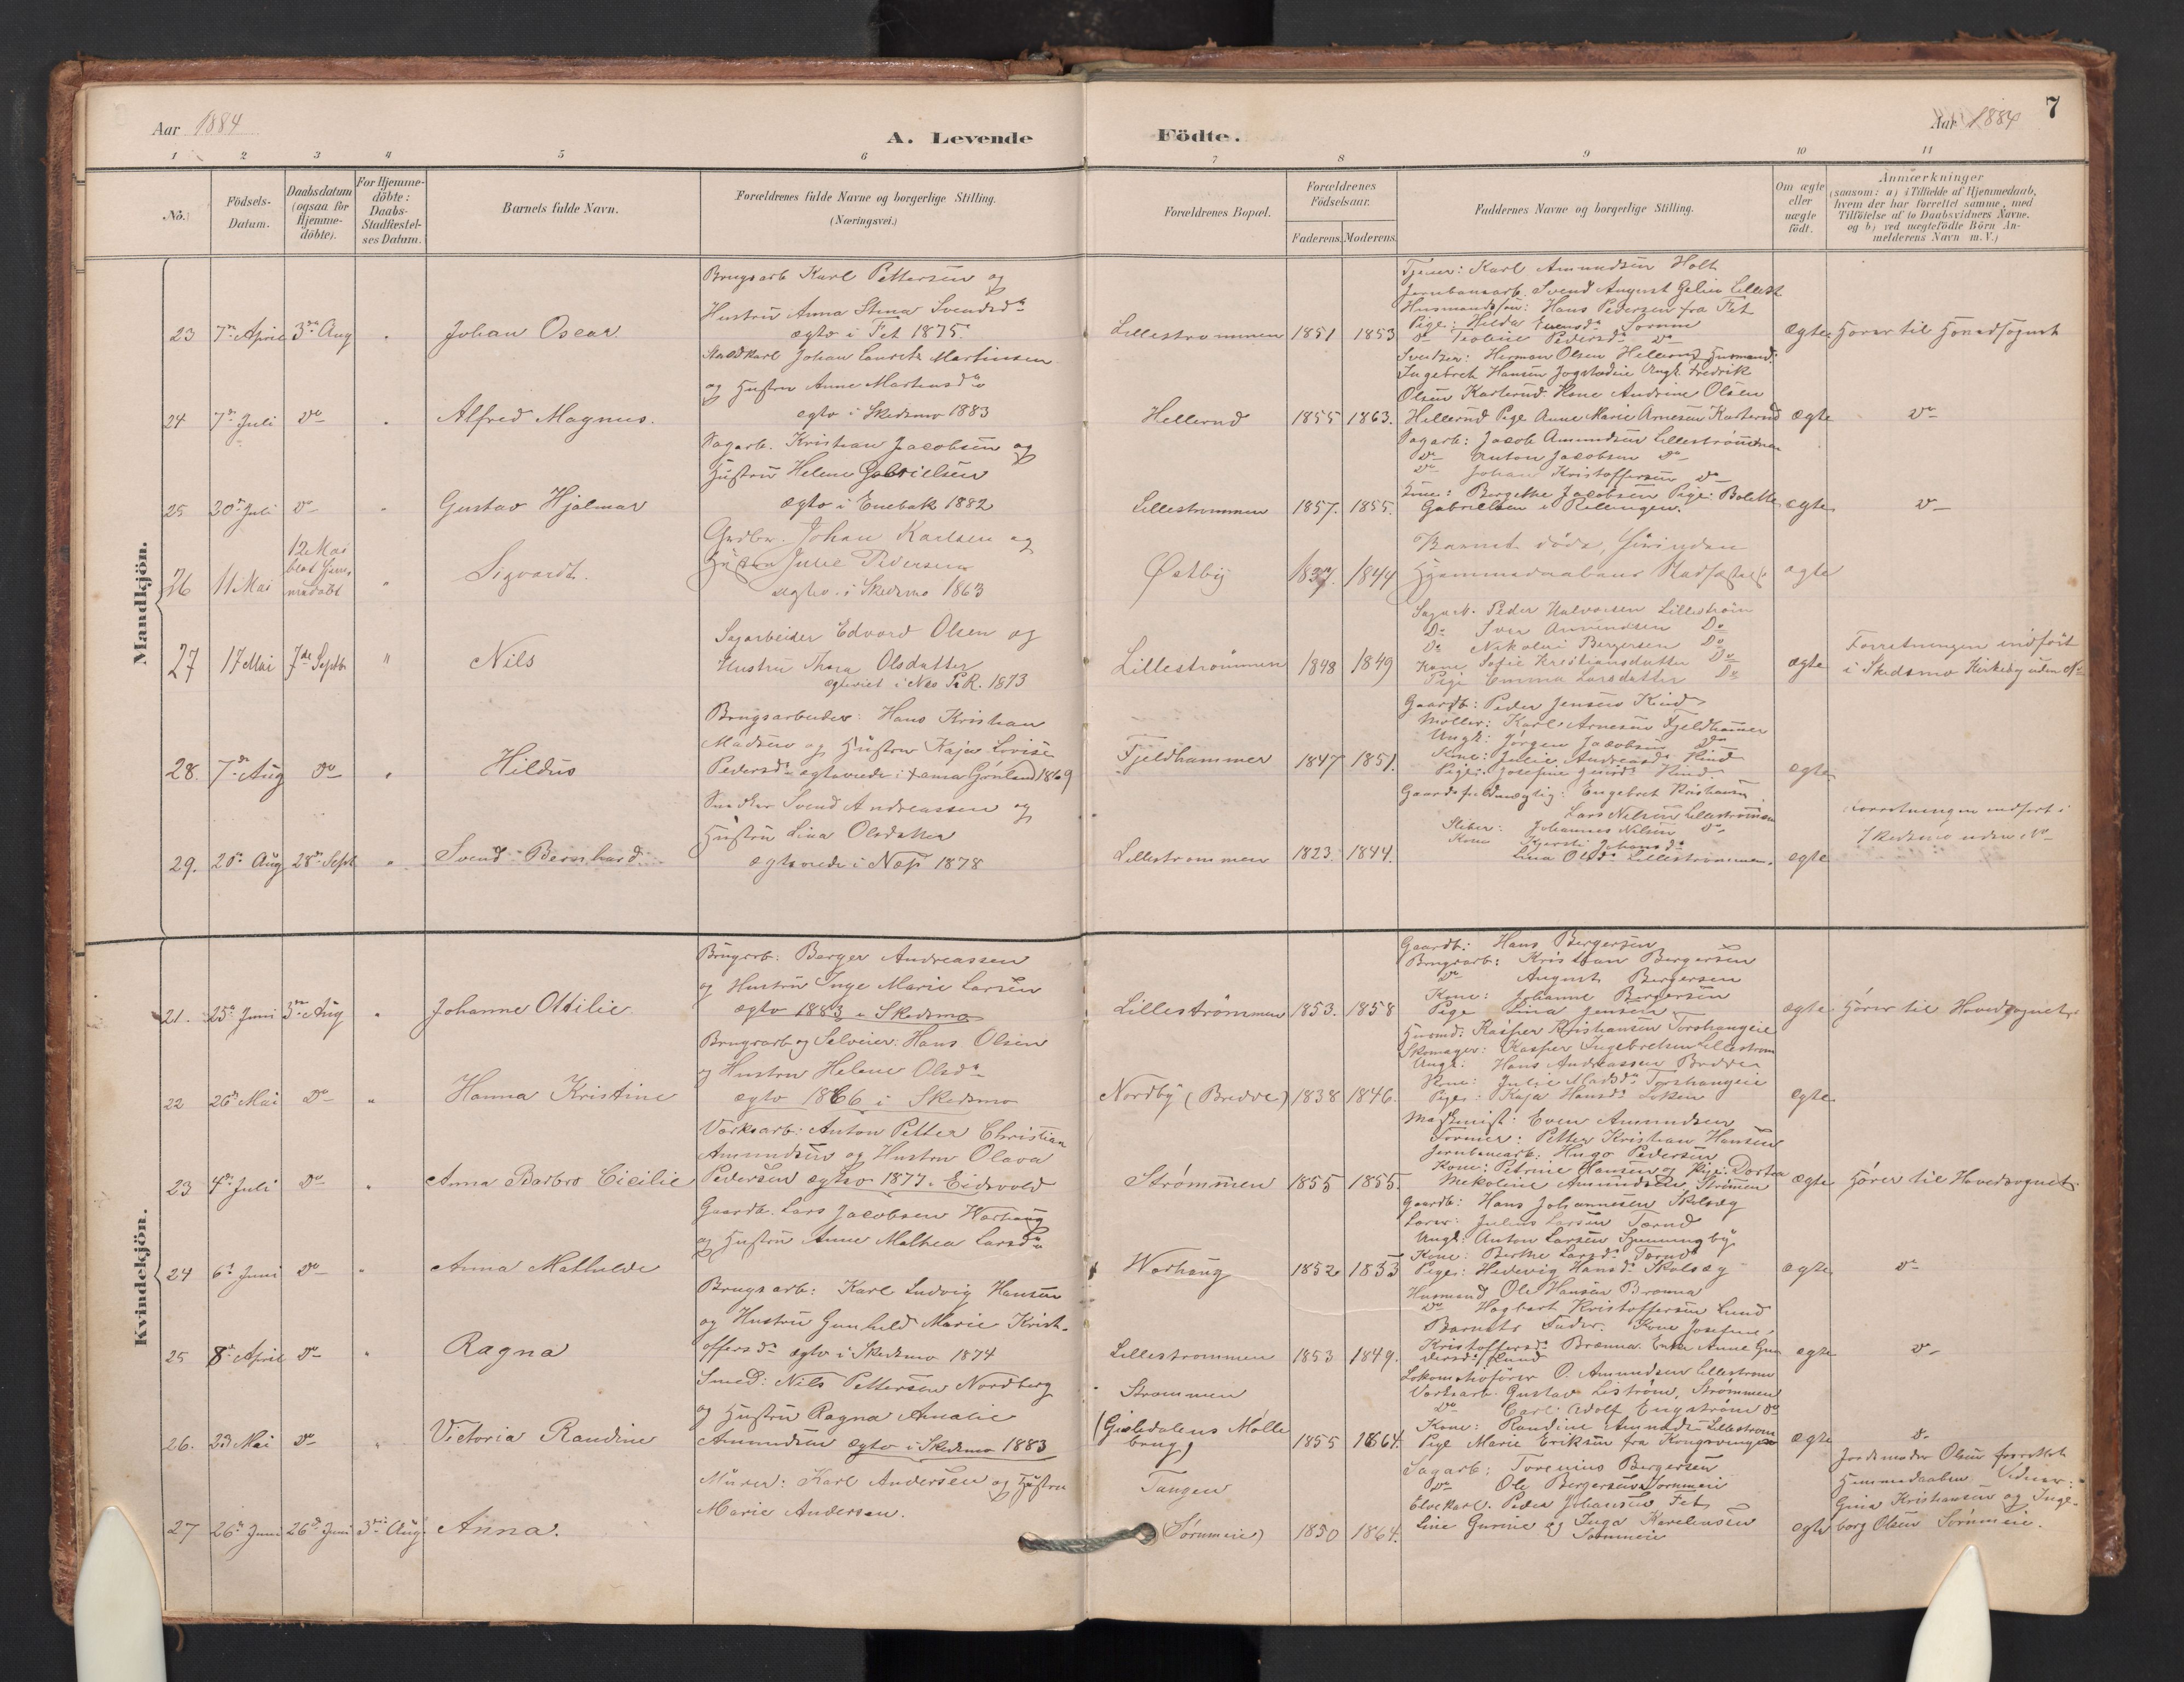 Aar 1884
A. Levende
Födte.
Aar 1884
7
1 2 3 4 5 6 7 8 9 10 11
No.
Födsels-
Datum.
Daabsdatum
(ogsaa for
Hjemme-
döbte).
For Hjemme-
döbte:
Daabs-
Stadfæstel-
ses Datum.
Barnets fulde Navn.
Forældrenes fulde Navne og borgerlige Stilling.
(Næringsvei.)
Forældrenes Bopæl.
Forældrenes
Födselsaar.
Faderens. Moderens.
Faddernes Navne og borgerlige Stilling.
Om ægte
eller
uægte
födt.
Anmærkninger
(saasom: a) i Tilfælde af Hjemmedaab,
hvem der har forrettet samme, med
Tilföielse af to Daabsvidners Navne.
og b) ved uægtefödte Börn An-
melderens Navn m.V.)
Mandkjön.
23 7de April 3die Aug " Johan Oscar.
Brugsarb Karl Pettersen og
Hustru Anna Stina Svendsda
ægtv i Fet 1875.
Lillestrømmen 1851 1853
Tjener: Karl Amundsen Holt
Jernbanearb. Svend August Lillest
Husmandssøn: Hans Pedersen fra Fet
Pige: Hilda Sørum
Do Pedersda Do
ægte Hører til Hovedsognet
24 7de Juli Do " Alfred Magnus.
Staldkarl Johan Lauritz Martinsen
og Hustru Anne Martinsda
ægtv i Skedsmo 1883
Hellerud 1855 1863.
Herman Olsen Hellerud Husmand:
Ingebret Hansen Ungk. Fredrik
Olsen Karterud. Kone Andrine Olsen
Hellerud Pige Anne Marie Arnesen Karterud
ægte Do
25 30te Juli Do " Gustav Hjalmar
Sagarb. Kristian Jacobsen og
Hustru Helene Gabrielsen
ægtv i Enebak 1882
Lillestrømmen 1857. 1855.
Sagarb: Jacob Amundsen Lillestrømmen
Do Anton Jacobsen Do
Do Johan Kristoffersen Do
Kone: Bergethe Jacobsen Pige: Bolette
Gabrielsen i Rellingen.
ægte Do
26 11 Mai 12 Mai
blot hjem-
medøbt " Sigvardt.
Grdbr. Johan Karlsen og
Hustru Julie Pedersen
ægtev. i Skedsmo 1863
Østby 1837. 1844
Barnet døde, førinden
Hjemmedaabens Stadfæstelse
ægte
27 17 Mai 7de Septbr " Nils
Sagarbeider Edvard Olsen og
Hustru Thea Olsdatter
ægteviet i Nes P.R. 1873
Lillestrømmen 1848 1849
Sagarb. Peder Halvorsen Lillestrøm
Do Iver Amundsen Do
Do Nikolai Bergersen Do
Kone Sofie Kristiansdatter Do
Pige Emma Larsdatter Do
ægte Forretningen indført
i Skedsmo Kirkebog uden No
28. 7de Aug Do " Hildus
Brugsarbeider: Hans Kristian
Madsen og Hustru Kaja Lovise
Pedersda ægteviede i Grønland 1869
Fjeldhammer 1847 1851.
Gaardb: Peder Jensen Rind
Møller: Karl Arnesen Fjeldhammer
Ungk: Jørgen Jacobsen Do
Kone: Julie Andreasda Rind
Pige: Josefine Rind.
ægte
29. 20de Aug 28de Sept " Svend Bernhard
Snedker Svend Andreassen og
Hustru Lina Olsdatter
ægteviede i Næs 1878
Lillestrømmen 1823. 1844.
Gaardsfuldmægtig: Engebret Kristiansen
Lars Nilsen Lillestrømmen
Sliber: Johannes Nilsen Do
Kone Kjersti Johansda
Lina Olsda Lillestrømmen.
ægte Forretningen indført i
Skedsmo uden No
Kvindekjön.
21. 25de Juni 3die Aug " Johanne Ottilie
Brugsarb: Berger Andreassen
og Hustru Inge Marie Larsen
ægtv 1883 i Skedsmo
Lillestrømmen 1853. 1858
Gaardb: Hans Bergersen
Brugsarb: Kristian Bergersen
Do August Bergersen
Kone: Johanne Bergersen
Pige Lina Jensen
ægte Hører til Hovedsognet.
22 26de Mai Do " Hanna Kristine
Brugsarb og Selveier: Hans Olsen
og Hustru Helene Olsda
ægtv 1866 i Skedsmo
Nordby (Bredve) 1838 1846.
Husmd: Kasper Kristiansen Torshaugeie
Skomager: Kasper Ingebretsen Lillestrøm
Ungk: Hans Andreassen Bredve
Kone: Julie Madsda Torshaugeie
Pige: Kaja Hansda
ægte
23 4de Juli Do " Anna Barbro Cicilie
Værksarb: Anton Petter Christian
Amundsen og Hustru Olava
Pedersen ægtv 1877 i Eidsvold
Strømmen 1855 1855.
Maskinist: Even Amundsen
Former: Petter Kristian Hansen
Jernbanearb: Hugo Pedersen
Kone: Petrine Hansen og Pige: Dortea
Nikoline Amundsen Strømmen
ægte Hører til Hovedsognet.
24 6te Juni Do " Anna Mathilde
Gaardb. Lars Jacobsen Warhaug
og Hustru Anne Mathea Larsda
Warhaug 1852 1853
Gaardb: Hans Johannesen Skolsæg
Lærer: Julius Larsen Tærud
Ungk: Anton Larsen Hemmingby
Kone: Berthe Larsda Tærud
Pige: Hedevig Hansda Skolsæg
ægte Do
25 8de April Do " Ragna
Brugsarb: Karl Ludvig Hansen
og Hustru Gunhild Marie Krist-
offersda ægtv i Skedsmo 1874
Lillestrømmen 1853 1849.
Husmand Ole Hansen Brænna
Do Hagbart Kristoffersen Lund
Barnets Fader. Kone Josefine
Kristoffersda Brænna. Enke Anne Gun
dersda Lund
ægte Do
26. 23 Mai Do " Victoria Randine
Smed: Nils Petterson Nordberg
og Hustru Ragna Amalie
Amundsen ægtv i Skedsmo 1883
Strømmen
(Gjelledalens Mølle
brug) 1855 1864.
Lokomotivfører O. Amundsen Lillestrøm
Værksarb. Gustav Liström, Strømmen
Do Carl Adolf Engström Do
Kone: Randine Amundsen Lillestrøm
Pige Marie Eriksen fra Kongsvinger
ægte Do
27 26de Juni 26de Juni 3die Aug. Anna.
Murer: Karl Andersen og Hustru
Marie Andersen.
Tangen
(Sørumeie) 1850 1864.
Sagarb: Torenius Bergersen
Do Ole Bergersen Sørumeie
Elvekarl. Peder Johansen Fet
Line Gurine og Inga Karelinsen
Sørumeie
ægte Jordemoder Olsen forrettet
Hjemmedaaben Vidner:
Gina Kristiansen og Inge-
borg Olsen Sørumeie.